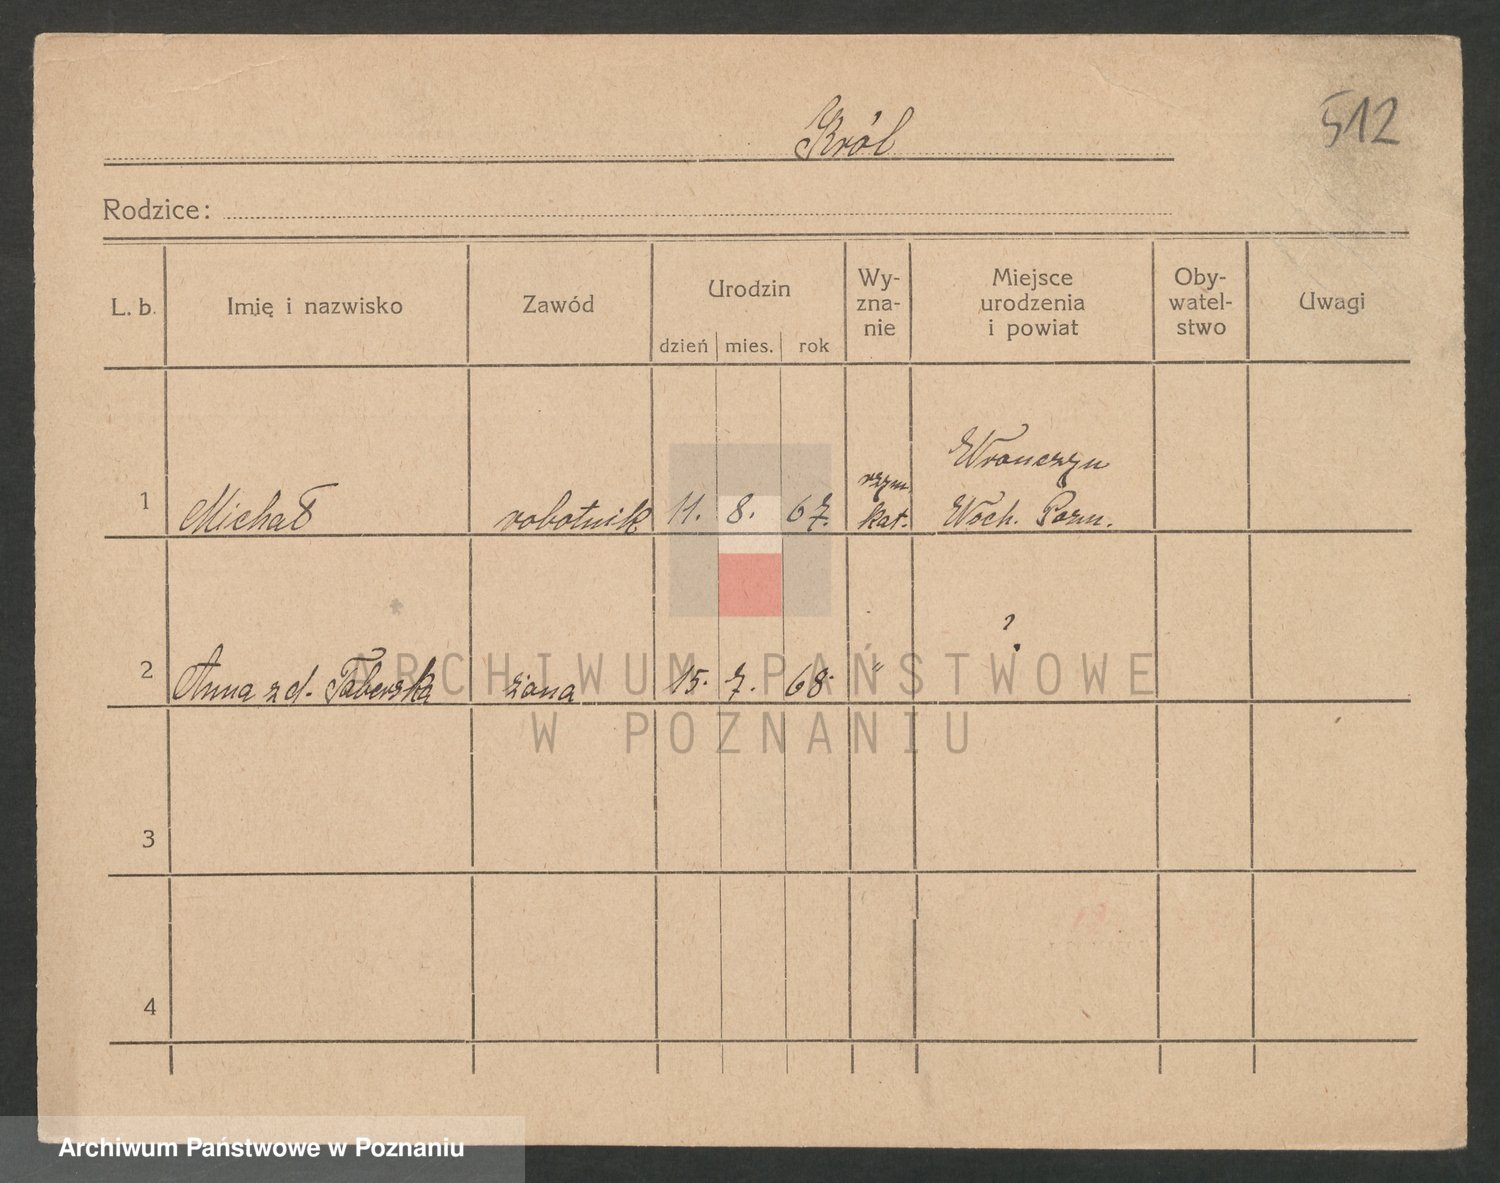 Król
512
Rodzice:
L. b.
Imię i nazwisko
Zawód
Urodzin
dzień mies. rok
Wy-
zna-
nie
Miejsce
urodzenia
i powiat
Oby-
watel-
stwo
Uwagi
1 Michał robotnik 11. 8. 67. rzym. kat.
Wronczyn
Wsch. Pozn.
2 Anna z d. Taberska żona 15. 7. 68. " ?
3
4
ARCHIWUM PAŃSTWOWE
W POZNANIU
Archiwum Państwowe w Poznaniu